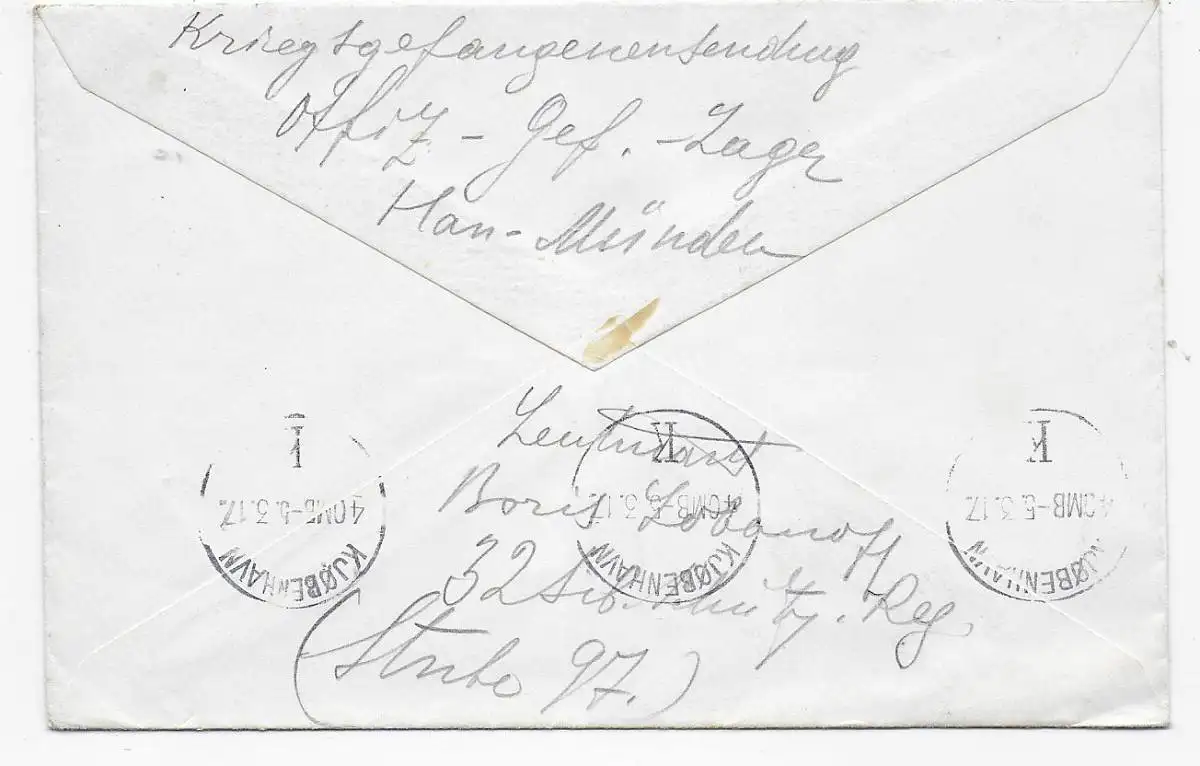 Kriegsgefangenensendung
Offiz - Gef. - Lager
Han - Münden
Leutnant
Boris Lobanoff
32 Reg.
(Stube 97.)
4 OMB - 5.3.17.
KJØBENHAVN
K
4 OMB - 5.3.17.
KJØBENHAVN
K
4 OMB - 5.3.17.
KJØBENHAVN